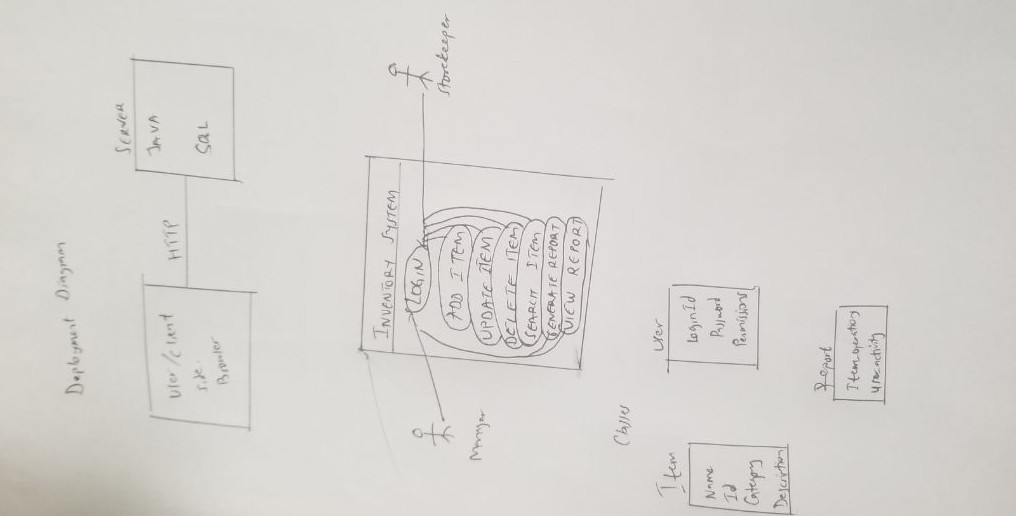 Deployment Diagram
User/client
side
Browser
HTTP
SERVER
JAVA
SQL
INVENTORY SYSTEM
LOGIN
ADD ITEM
UPDATE ITEM
DELETE ITEM
SEARCH ITEM
GENERATE REPORT
VIEW REPORT
Manager
Storekeeper
Classes
Item
Name
Id
Category
Description
User
Login Id
Password
Permissions
Report
Item operation
User activity